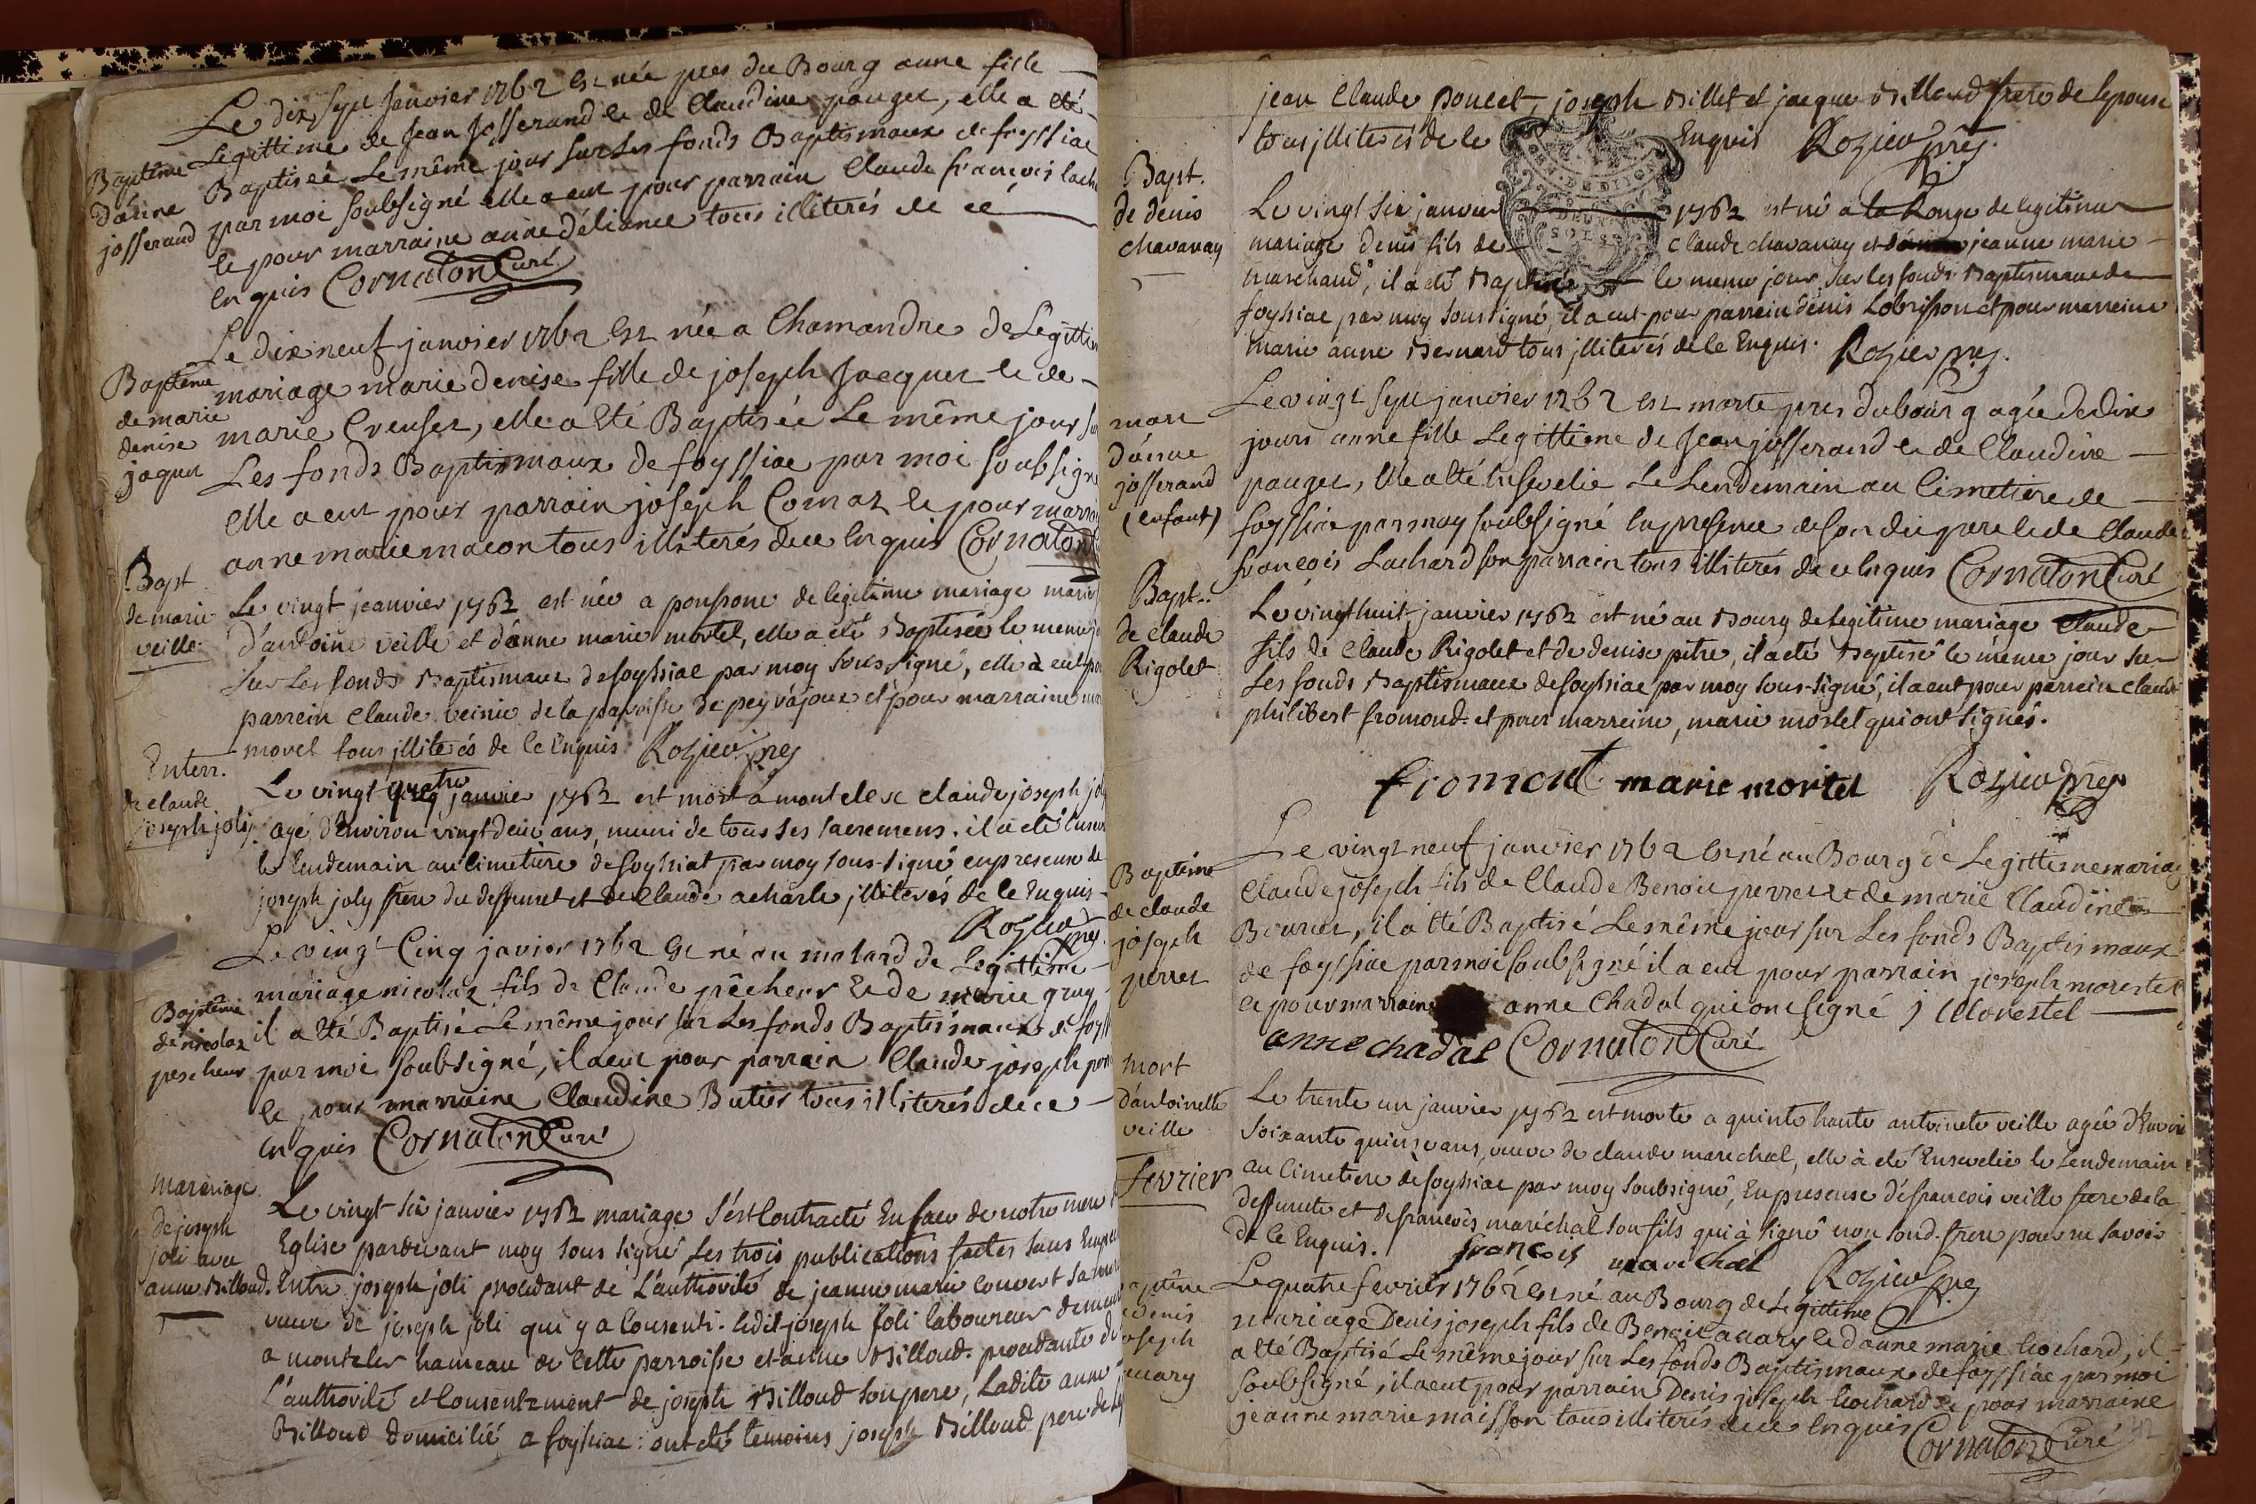 Le dix sept Janvier 1762 est née pres du Bourg anne fille
Baptême
d'anne
josserand
Legittime de Jean Josserand et de Claudine pauget, elle a eté
Baptisée Le même jour sur Les fonds Baptismaux de foyssiac
par moi soubsigné elle a eut pour parrain Claude francois
et pour marraine anne déliance tous illiterés de ce
enquis Cornaton Curé
Le dixneuf janvier 1762 est née a Chamandre de Legittim
Baptême
de marie
denise
jaquet
mariage marie denise fille de joseph Jacquet et de
marie Creuset, elle a eté Baptisée Le même jour sur
Les fonds Baptismaux de foyssiac par moi soubsigné
elle a eut pour parrain joseph Comaz et pour marra
anne marie macon tous illiterés de ce enquis Cornaton
Bapt
de marie
veille
Le vingt jeanvier 1762 est née a ponpone de legitime mariage marie
d'antoine veille et d'anne marie mortel, elle a eté Baptisée le meme
sur Les fonds Baptismaux de foyssiac par moy sous signé, elle à eut
parrein claude de la paroisse de et pour marraine
morel tous jlliterés de ce enquis Rozier prêt
Enterr.
de claude
joseph joli
Le vingt quatre janvier 1762 est mort a claude joseph
agé d'environ vingt deux ans, muni de tous ses sacremens. il a eté
le lendemain au cimetiere de foyssiat par moy sous-signé en presence de
joseph joly frere du deffunct et de claude jlliterés de ce enquis
Rozier prêt
Le vingt Cinq javier 1762 est né au molard de Legittime
Baptême
de nicolaz
pescheur
mariage nicolaz fils de Claude pêcheur et de marie
il a eté Baptisé Le même jour sur Les fonds Baptismaux de foyss
par moi soubsigné, il a eut pour parrain Claude joseph
et pour marraine Claudine Butier tous illiterés de ce
enquis Cornaton Curé
marariage
de joseph
joli avec
anne Billoud.
Le vingt six janvier 1762 mariage s'est Contracté en face de notre mere
Eglise pardevant moy sous signé Les trois publications faites sans
Entre joseph joli procedant de L'authorité de jeanne marie
veuve de joseph joli qui y a Consenti. ledit joseph joli laboureur
a hameau de cette parroisse et anne Billoud. procedante de
L'authorité et Consentement de joseph Billoud son pere, Ladite anne
Billoud domicilié a foyssiac: ont eté temoins joseph Billoud pere de
jean Claude poncet, joseph Billet et jacque Billoud frere de lepouse
tous jlliterés de ce Enquis Rozier prêt.
Bapt.
de denis
chavanay
Le vingt six janvier 1762 est né a la Ronge de legitime
mariage denis fils de claude chavanay et jeanne marie
marchand, il a eté Baptisé le meme jour sur les fonds Baptismaux de
foyssiac par moy soussigné, il a eut pour parrein denis Lobrisson et pour marreine
marie anne Bernard tous jlliterés de ce Enquis. Rozier prêt.
mort
d'anne
josserand
(enfant)
Le vingt sept janvier 1762 est morte pres du bourg agée de dix
jours anne fille Legittime de Jean josserand et de Claudine
pauget, elle a eté Ensevelie Le Lendemain au Cimetiere de
foyssiac par moy soubsigné en presence de son dit pere et de Claude
francois Lachard son parrain tous illiterés de ce enquis Cornaton Curé
Bapt.
de claude
Rigolet
Le vingt huit janvier 1762 est né au Bourg de legitime mariage Claude
fils de Claude Rigolet et de denise pitre, il a eté Baptisé le même jour sur
Les fonds Baptismaux de foyssiac par moy sous-signé, il a eut pour parrein claude
philibert fromond. et pour marreine, marie mortel qui ont signés.
fromont marie mortel Rozier prêt
Baptême
de claude
joseph
perret
Le vingt neuf janvier 1762 est né au Bourg de Legittime mariag
Claude joseph fils de Claude Benoit perret et de marie Claudine
Bourier, il a eté Baptisé Le même jour sur Les fonds Baptismaux
de foyssiac par moi soubsigné il a eut pour parrain joseph morestel
et pour marraine anne Chadal qui ont signé J Morestel
anne chadal Cornaton Curé
mort
d'antoinette
veille
Le trente un janvier 1762 est morte a quinte haute antoinete veille agée d'Environ
soixante quinze ans, veuve de claude marechal, elle à eté Ensevelie le Lendemain
au Cimetiere de foyssiac par moy soubsigné, En presense de francois veille frere de la
deffuncte et de francois maréchal son fils qui à signé non sond. frere pour ne savoir
de ce Enquis. francois marechal Rozier prêt
fevrier
Le quatre fevrier 1762 est né au Bourg de Legittime
mariage Denis joseph fils de Benoit et d'anne marie Cochard, il
a eté Baptisé Le même jour sur Les fonds Baptismaux de foyssiac par moi
soubsigné, il a eut pour parrain Denis joseph Cochard et pour marraine
jeanne marie maisson tous illiterés de ce enquis Cornaton Curé